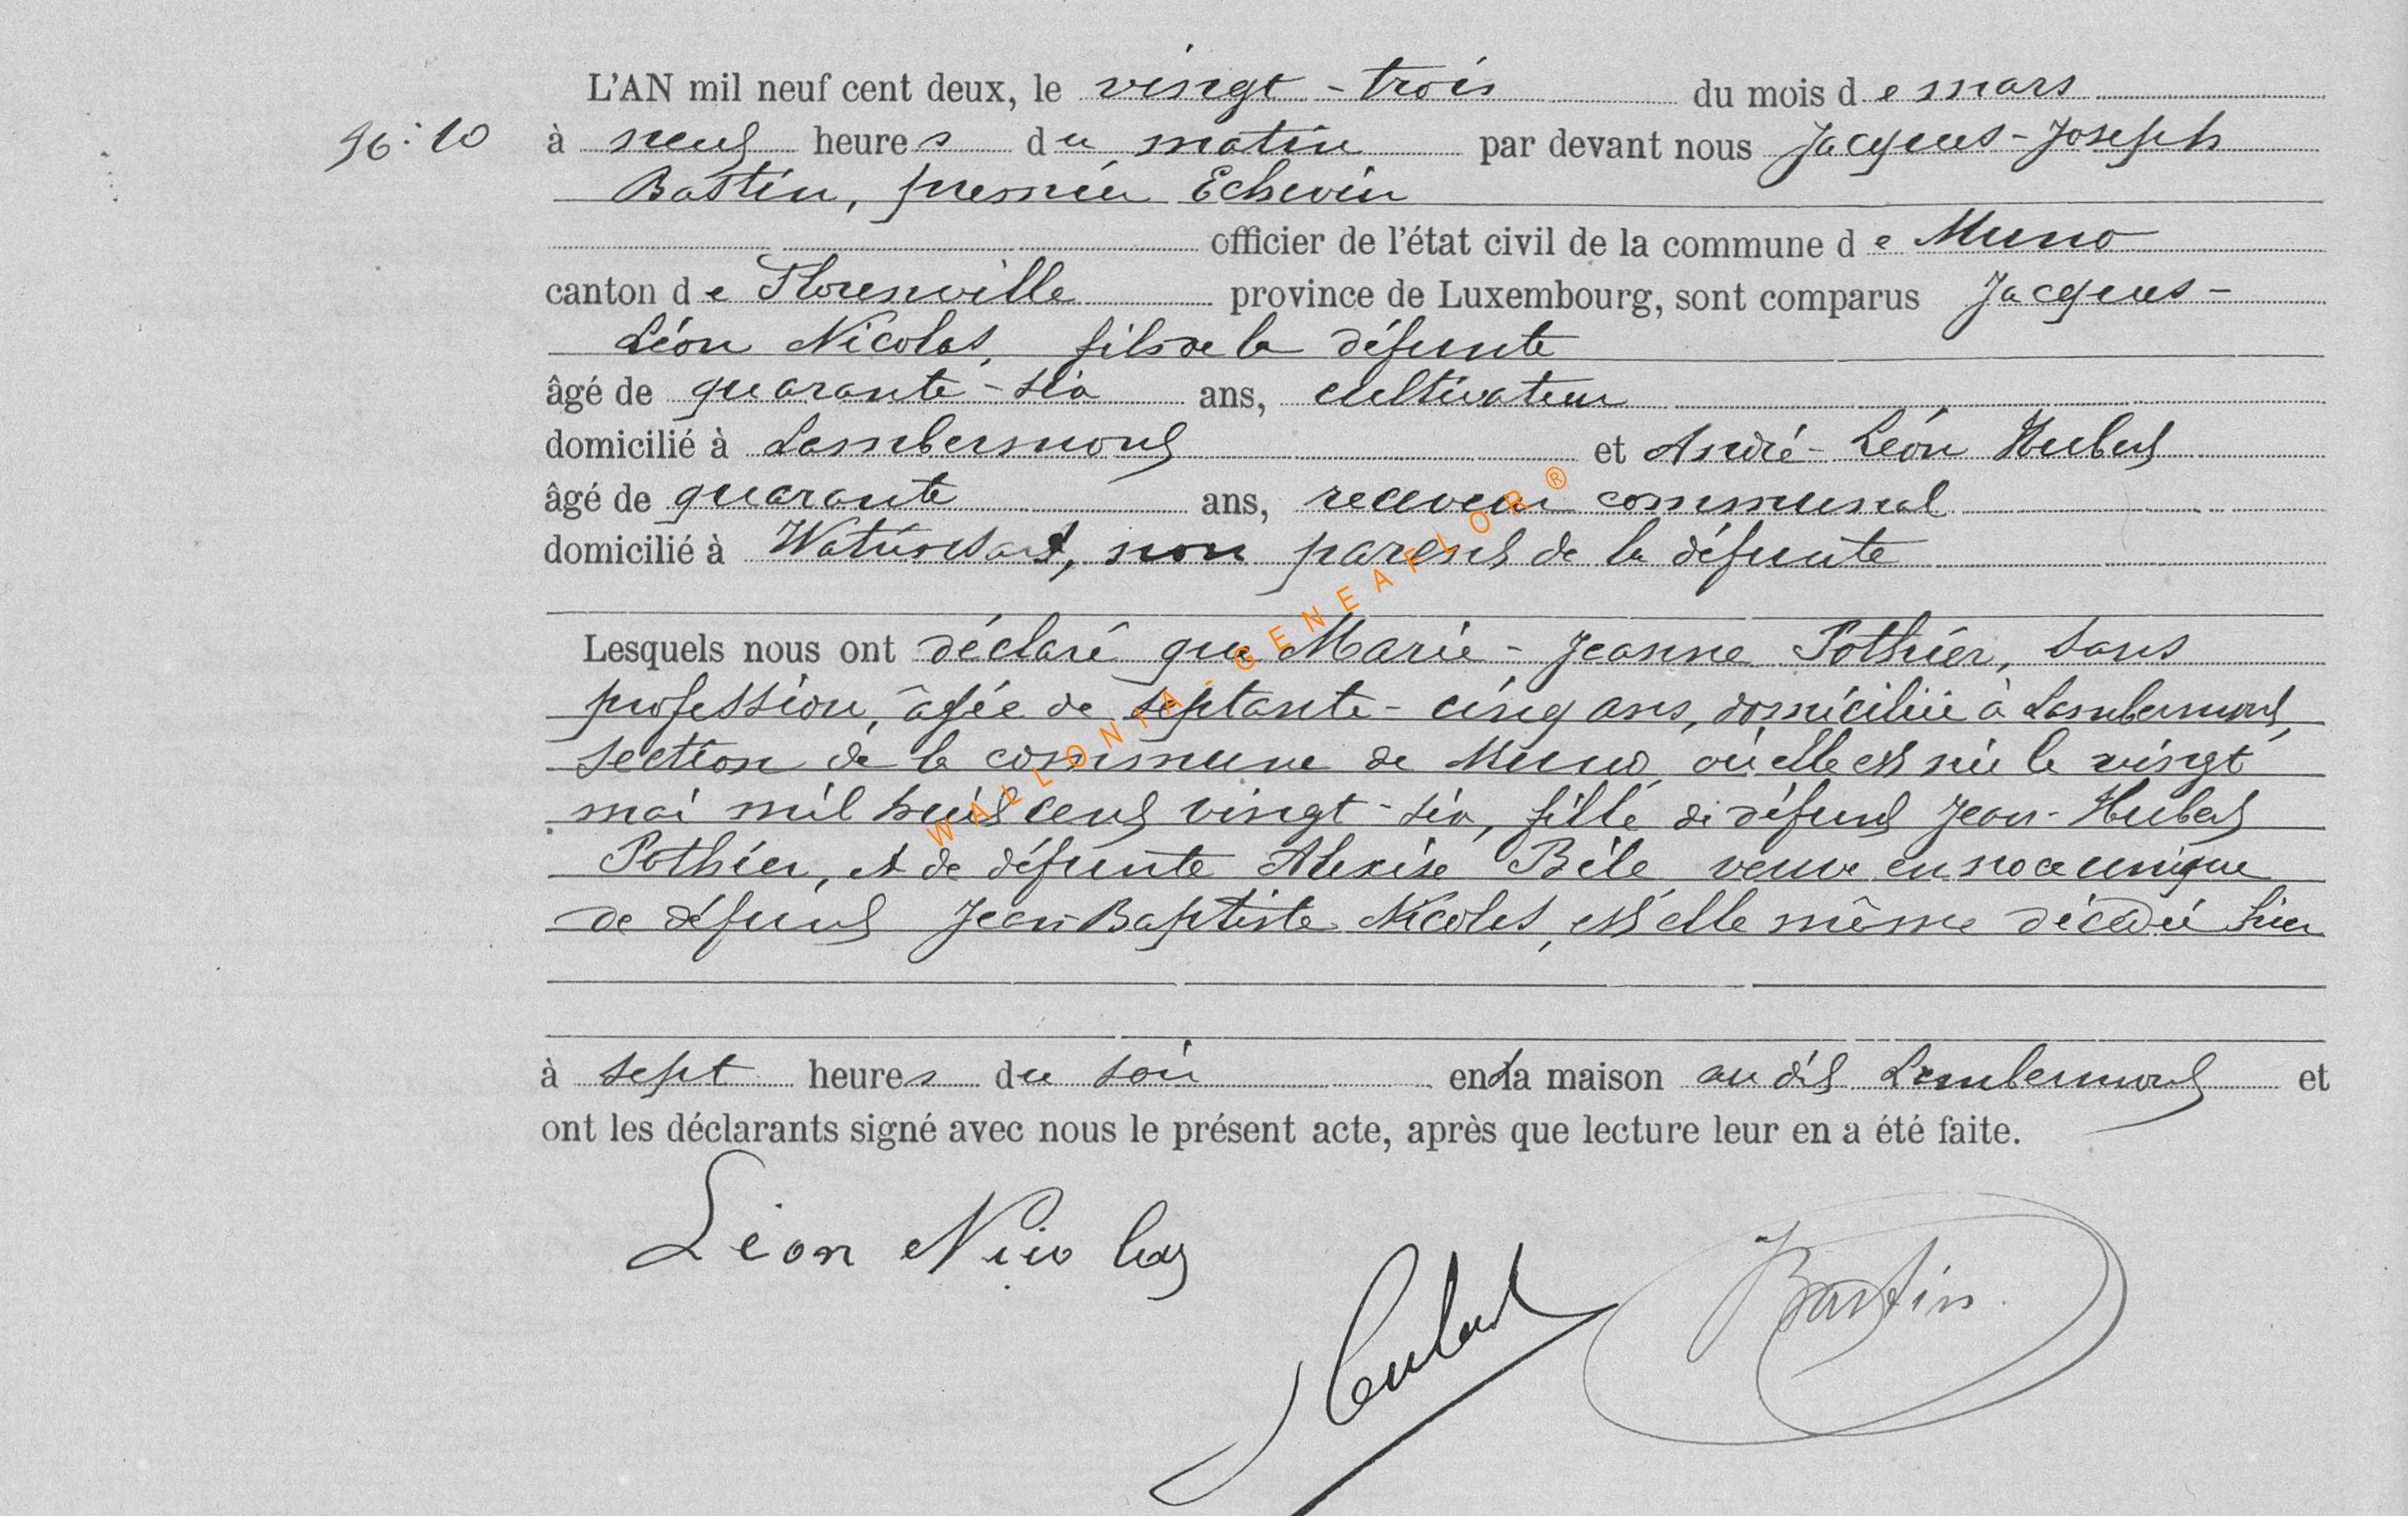 L'AN mil neuf cent deux, le vingt-trois du mois de mars
N°: 10 à neuf heures du matin par devant nous Jacques-Joseph
Bastin, premier Echevin
officier de l'état civil de la commune de Muno
canton de Florenville province de Luxembourg, sont comparus Jacques-
Léon Nicolas, fils de la défunte
âgé de quarante-six ans, cultivateur
domicilié à Lambermont et André-Léon Hubert
âgé de quarante ans, receveur communal
domicilié à Watrinsart, non parent de la défunte
Lesquels nous ont déclaré que Marie-Jeanne Pothier, sans
profession, âgée de septante-cinq ans, domiciliée à Lambermont,
section de la commune de Muno, où elle est née le vingt
mai mil huit cent vingt-six, fille de défunt Jean-Hubert
Pothier, et de défunte Alexise Bèle veuve en noce unique
de défunt Jean-Baptiste Nicolas, est elle même décédée hier
à sept heures du soir en la maison au dit Lambermont et
ont les déclarants signé avec nous le présent acte, après que lecture leur en a été faite.
Léon Nicolas
Hubert
Bastin
WALLONIA-GENEAFLOR®